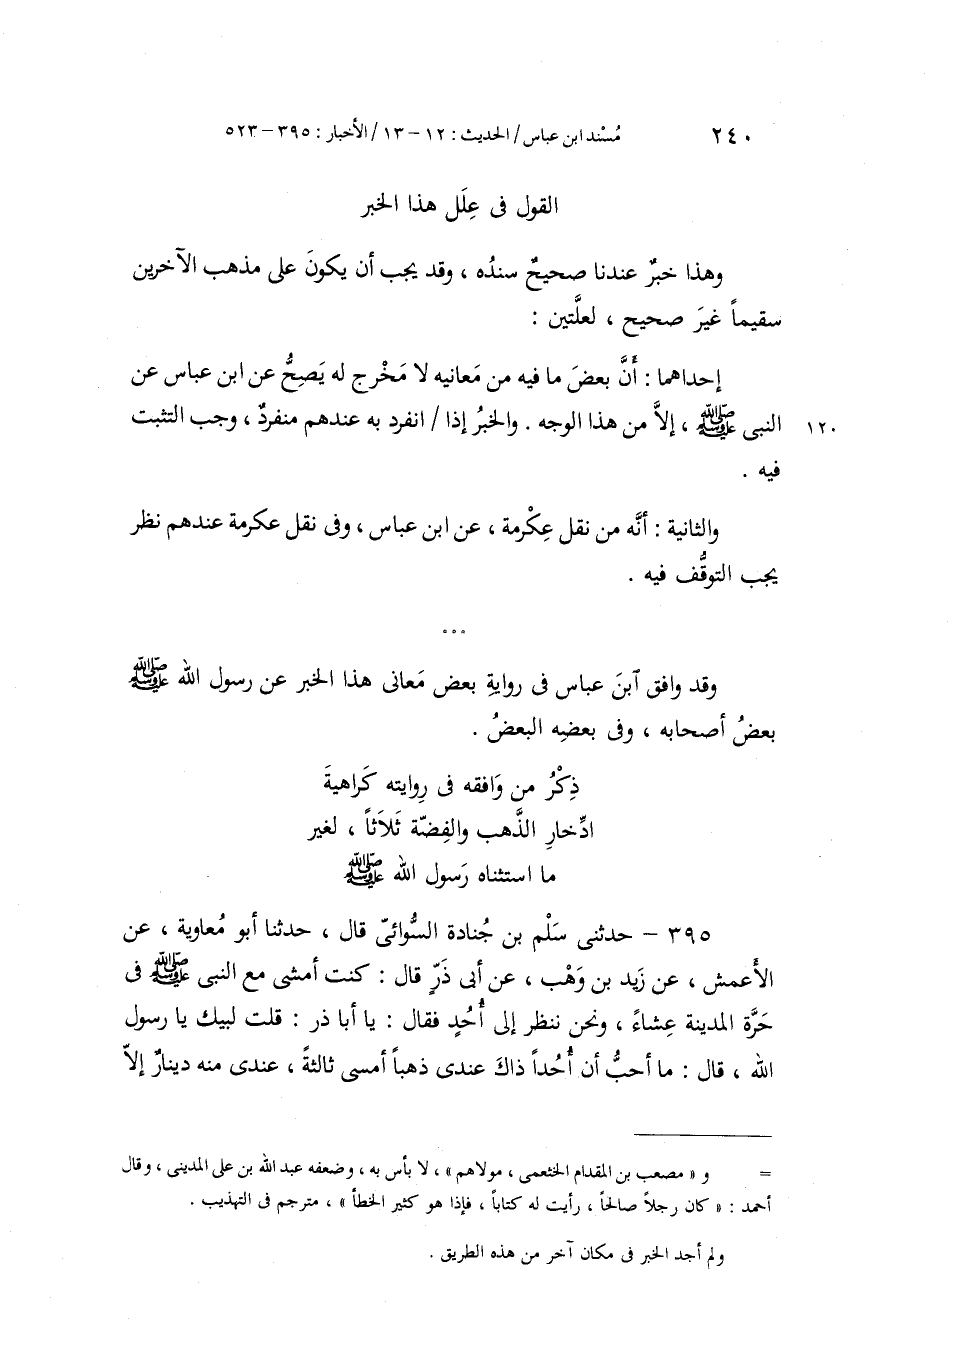 ٢٤٠ مُسْند ابن عباس / الحديث : ١٢ – ١٣ / الأخبار : ٣٩٥ – ٥٢٣
القول فى عِلَل هذا الخبر
وهذا خبرٌ عندنا صحيحٌ سندُه ، وقد يجب أن يكونَ على مذهب الآخرين
سقيماً غيرَ صحيح ، لعلَّتين :
إحداهما : أَنَّ بعضَ ما فيه من مَعانيه لا مَخْرج له يَصِحُّ عن ابن عباس عن
١٢٠ النبى ﷺ ، إلاَّ من هذا الوجه . والخبرُ إذا / انفرد به عندهم منفردٌ ، وجب التثبت
فيه .
والثانية : أنَّه من نقل عِكْرمة ، عن ابن عباس ، وفى نقل عكرمة عندهم نظر
يجب التوقُّف فيه .
° ° °
وقد وافق آبنَ عباس فى روايةِ بعض مَعانى هذا الخبر عن رسول الله ﷺ
بعضُ أصحابه ، وفى بعضِه البعضُ .
ذِكْرُ من وَافقه فى رِوايته كَراهيةَ
ادِّخارِ الذَّهب والفِضّة ثَلاَثاً ، لغير
ما استثناه رَسول الله ﷺ
٣٩٥ – حدثنى سَلْم بن جُنادة السُّوائىّ قال ، حدثنا أبو مُعاوية ، عن
الأَعمش ، عن زَيد بن وَهْب ، عن أبى ذَرّ قال : كنت أمشى مع النبى ﷺ فى
حَرَّة المدينة عِشاءً ، ونحن ننظر إلى أُحُدٍ فقال : يا أبا ذر : قلت لبيك يا رسول
الله ، قال : ما أحبُّ أن أُحُداً ذاكَ عندى ذهباً أمسى ثالثةً ، عندى منه دينارٌ إلاّ
= و « مصعب بن المقدام الخثعمى ، مولاهم » ، لا بأس به ، وضعفه عبد الله بن على المدينى ، وقال
أحمد : « كان رجلاً صالحاً ، رأيت له كتاباً ، فإذا هو كثير الخطأ » ، مترجم فى التهذيب .
ولم أجد الخبر فى مكان آخر من هذه الطريق .